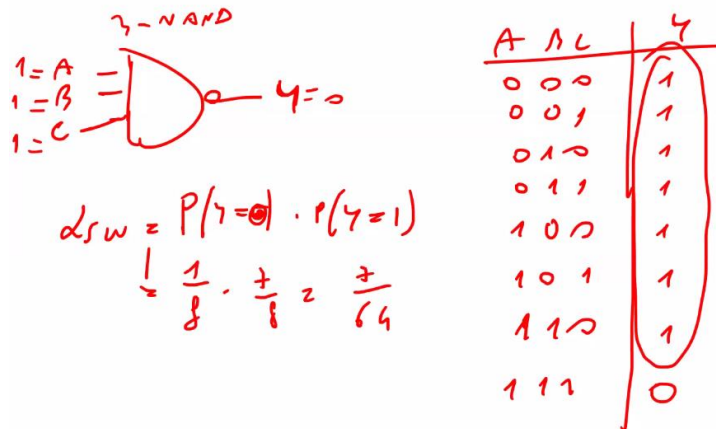 3-NAND
1=A
1=B
1=C
Y=0
αsw = P(Y=0) · P(Y=1)
= 1/8 · 7/8 = 7/64
A B C | Y
0 0 0 | 1
0 0 1 | 1
0 1 0 | 1
0 1 1 | 1
1 0 0 | 1
1 0 1 | 1
1 1 0 | 1
1 1 1 | 0